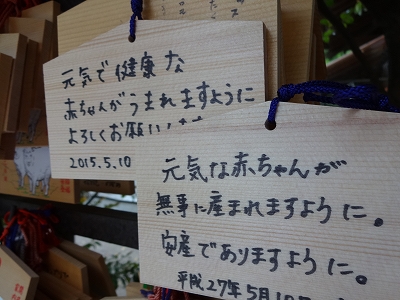 元気で健康な
赤ちゃんがうまれますように
よろしくお願い
2015.5.10
元気な赤ちゃんが
無事に産まれますように。
安産でありますように。
平成27年5月10